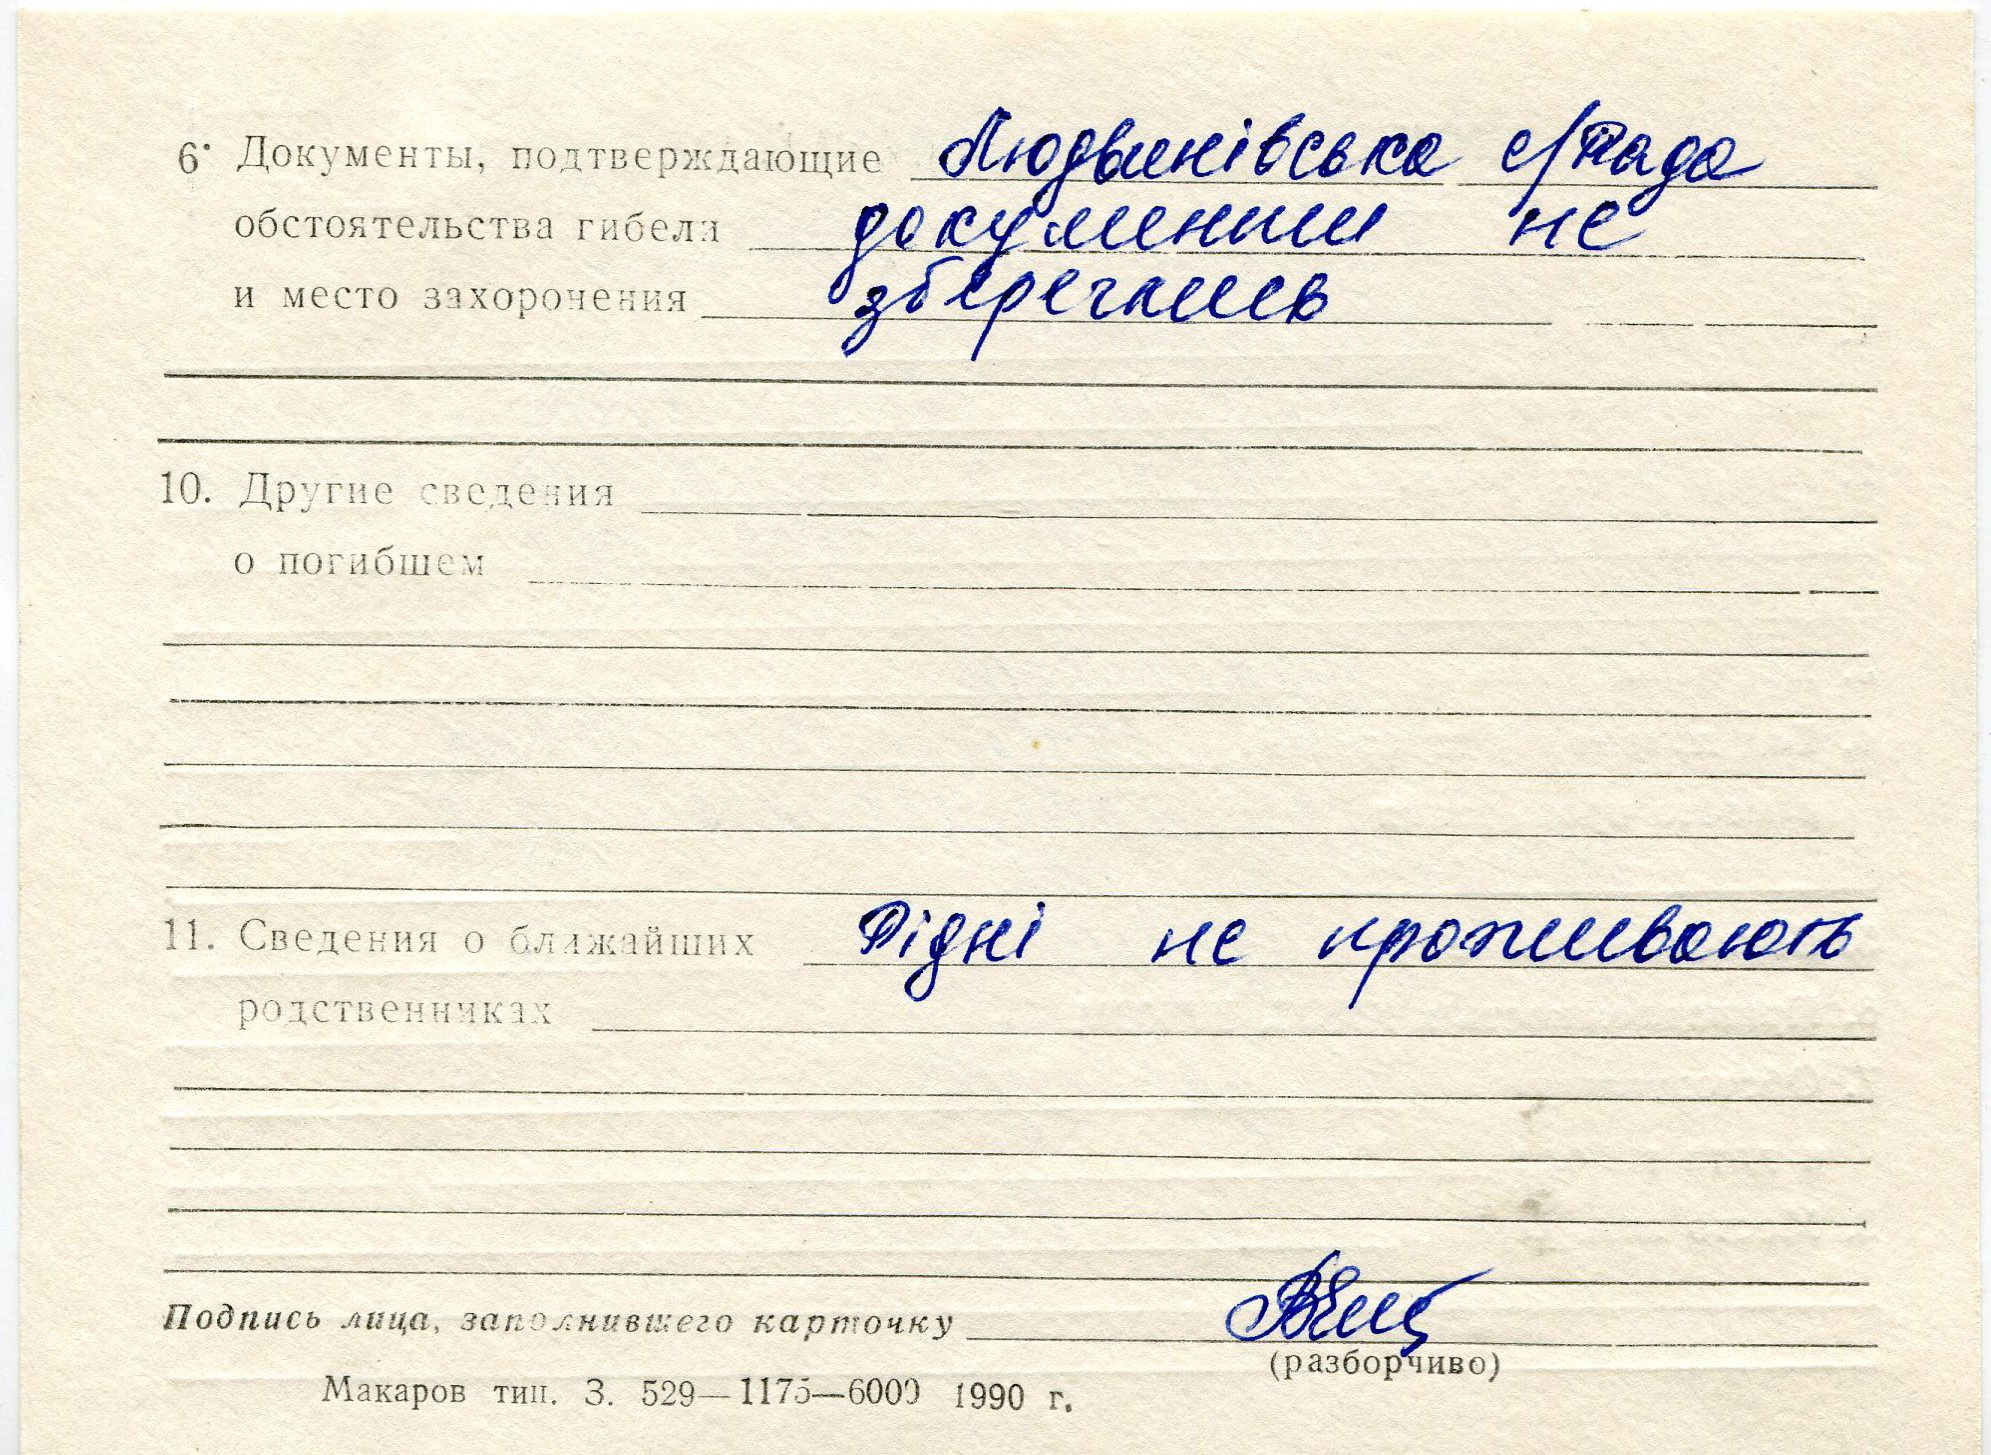 6. Документы, подтверждающие Людвинівська с/Рада
обстоятельства гибели документи не
и место захоронения збереглись
10. Другие сведения
о погибшем
11. Сведения о ближайших Рідні не проживають
родственниках
Подпись лица, заполнившего карточку
(разборчиво)
Макаров тип. З. 529—1175—6000 1990 г.